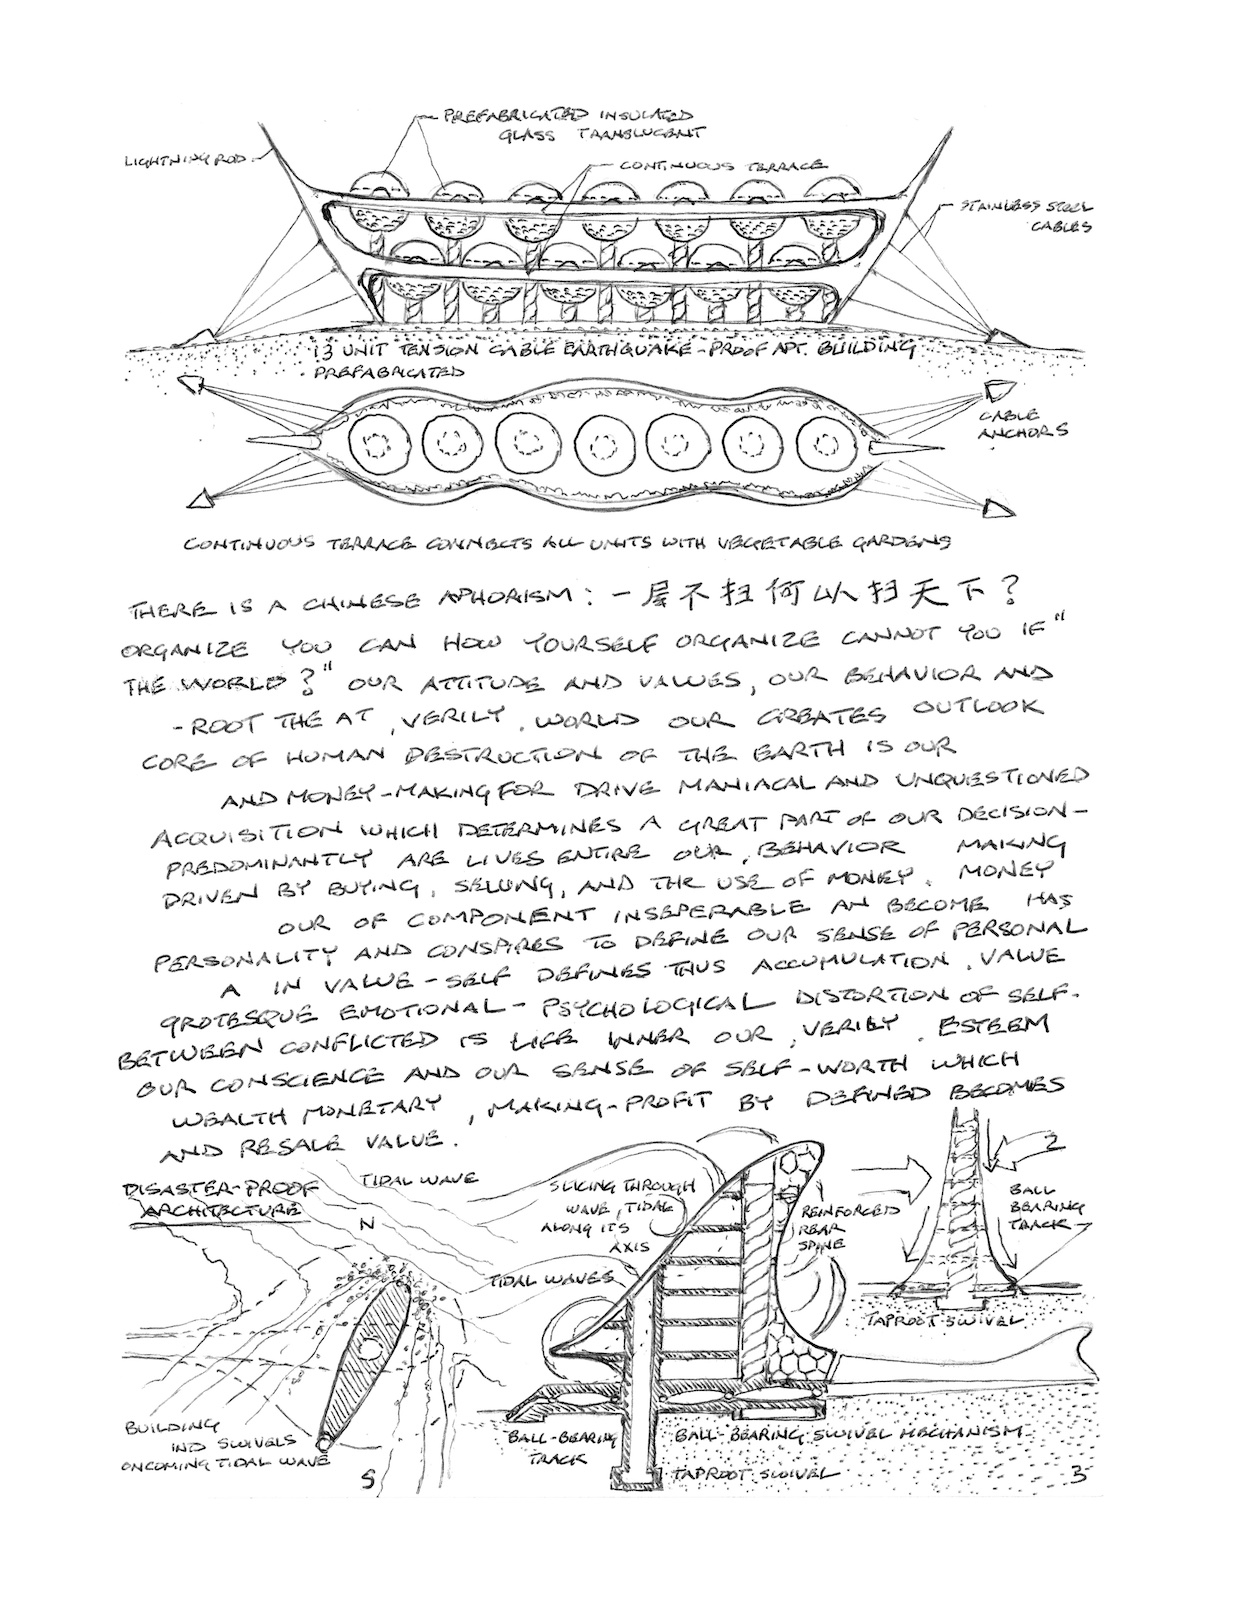 PREFABRICATED INSULATED
GLASS TRANSLUCENT
LIGHTNING ROD
CONTINUOUS TERRACE
STAINLESS STEEL
CABLES
13 UNIT TENSION CABLE EARTHQUAKE-PROOF APT. BUILDING
PREFABRICATED
CABLE
ANCHORS
CONTINUOUS TERRACE CONNECTS ALL UNITS WITH VEGETABLE GARDENS
THERE IS A CHINESE APHORISM: 一屋不扫何以扫天下?
ORGANIZE YOU CAN HOW YOURSELF ORGANIZE CANNOT YOU IF"
THE WORLD?" OUR ATTITUDE AND VALUES, OUR BEHAVIOR AND
-ROOT THE AT ,VERILY . WORLD OUR CREATES OUTLOOK
CORE OF HUMAN DESTRUCTION OF THE EARTH IS OUR
AND MONEY-MAKING FOR DRIVE MANIACAL AND UNQUESTIONED
ACQUISITION WHICH DETERMINES A GREAT PART OF OUR DECISION-
PREDOMINANTLY ARE LIVES ENTIRE OUR , BEHAVIOR MAKING
DRIVEN BY BUYING, SELLING, AND THE USE OF MONEY. MONEY
OUR OF COMPONENT INSEPERABLE AN BECOME HAS
PERSONALITY AND CONSPIRES TO DEFINE OUR SENSE OF PERSONAL
A IN VALUE-SELF DEFINES THUS ACCUMULATION . VALUE
GROTESQUE EMOTIONAL-PSYCHOLOGICAL DISTORTION OF SELF-
BETWEEN CONFLICTED IS LIFE INNER OUR ,VERILY . ESTEEM
OUR CONSCIENCE AND OUR SENSE OF SELF-WORTH WHICH
WEALTH MONETARY , MAKING-PROFIT BY DEFINED BECOMES
AND RESALE VALUE.
DISASTER-PROOF
ARCHITECTURE
TIDAL WAVE
N
SLICING THROUGH
WAVE, TIDAL
ALONG ITS
AXIS
TIDAL WAVES
REINFORCED
REAR
SPINE
2
BALL
BEARING
TRACK
TAPROOT SWIVEL
BUILDING
IND SWIVELS
ONCOMING TIDAL WAVE
S
BALL-BEARING
TRACK
BALL-BEARING SWIVEL MECHANISM
TAPROOT SWIVEL
3